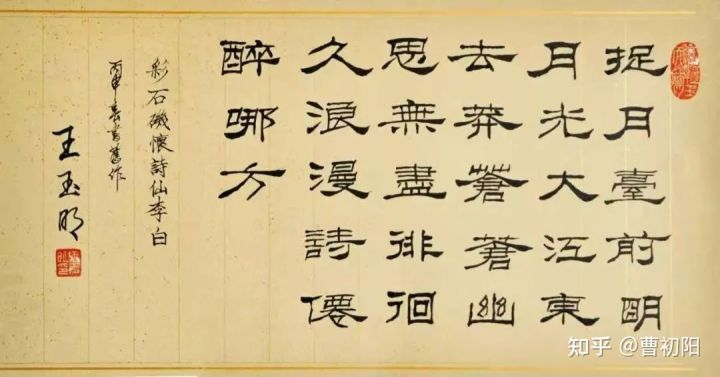 捉月臺前明
月光大江東
去莽蒼蒼幽
思無盡徘徊
久浪漫詩僊
醉哪方
彩石磯懷詩仙李白
丙申春書舊作
王玉明
知乎 @曹初阳